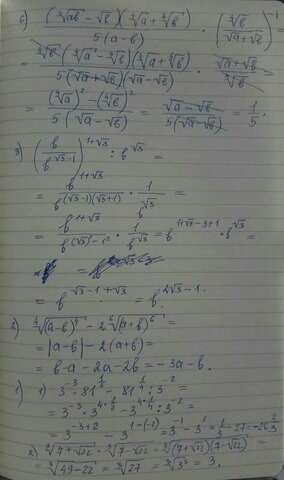 c) (⁴√ab − √b)(⁴√a + ⁴√b) / 5(a−b) · (⁴√b / (√a+√b))⁻¹ =
= ⁴√b(⁴√a − ⁴√b)(⁴√a + ⁴√b) / 5(√a+√b)(√a−√b) · (√a+√b) / ⁴√b =
= ((⁴√a)² − (⁴√b)²) / 5(√a−√b) = (√a−√b) / 5(√a−√b) = 1/5.
3) (b / b^(√3−1))^(1+√3) : b^√3 =
= b^(1+√3) / b^((√3−1)(√3+1)) · 1 / b^√3 =
= b^(1+√3) / b^((√3)²−1²) · 1 / b^√3 = b^(1+√3−3+1) · b^√3 =
= b^(√3−1+√3) = b^(2√3−1).
2) ⁴√(a−b)⁴ − 2 ⁶√(a+b)⁶ =
= |a−b| − 2(a+b) =
= b−a−2a−2b = −3a−b.
1) 3⁻³·81^(1/2) − 81^(1/4) : 3⁻² =
= 3⁻³·3^(4·1/2) − 3^(4·1/4) : 3⁻² =
= 3^(−3+2) − 3^(1−(−2)) = 3⁻¹ − 3³ = 1/3 − 27 = −26 2/3
2) ³√(7+√22) · ³√(7−√22) = ³√((7+√22)(7−√22)) =
= ³√(49−22) = ³√27 = ³√3³ = 3.